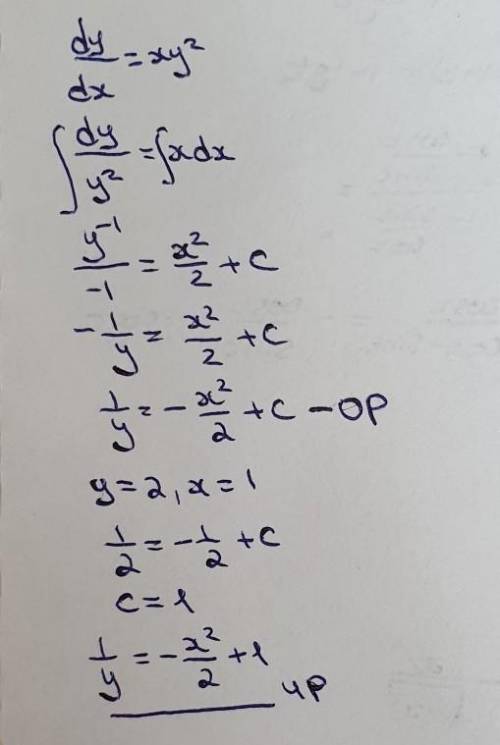 dy/dx = xy²
∫ dy/y² = ∫ x dx
y⁻¹/-1 = x²/2 + C
- 1/y = x²/2 + C
1/y = - x²/2 + C - ОР
y = 2, x = 1
1/2 = - 1/2 + C
C = 1
1/y = - x²/2 + 1
ЧР